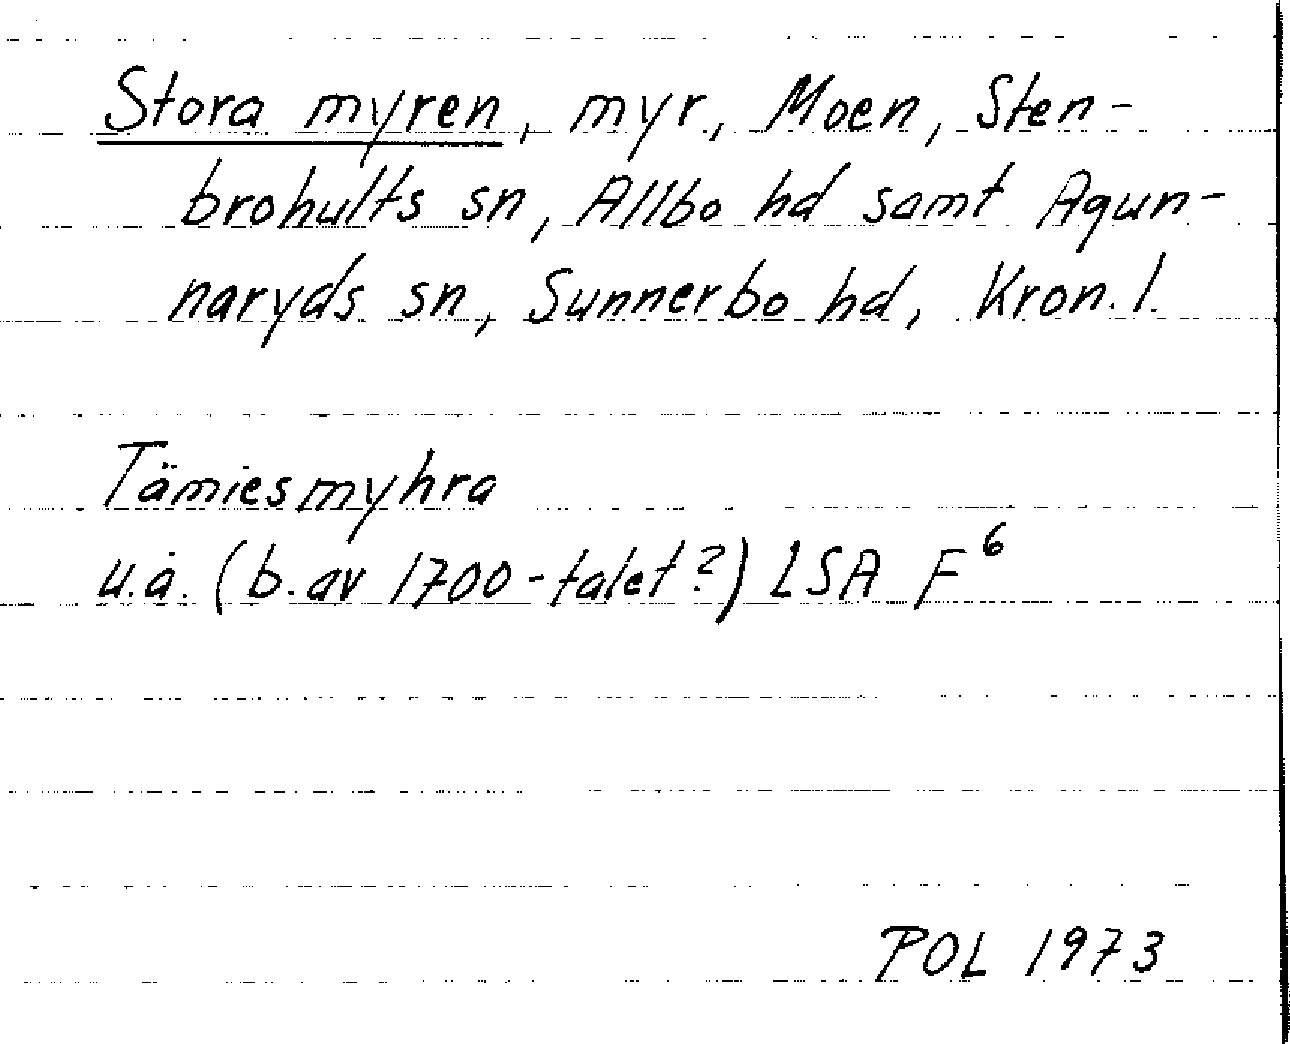 Stora myren, myr, Moen, Sten-
brohults sn, Allbo hd samt Agun-
naryds sn, Sunnerbo hd, Kron.l.
Tämiesmyhra
u.å. (b. av 1700-talet?) LSA F⁶
POL 1973